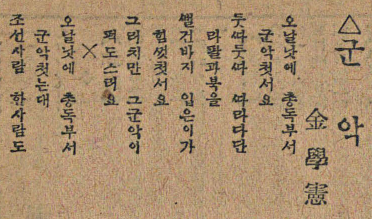 △군 악
金學憲
오날낫에 총독부서
군악첫서요
둣따둣따 따라다단
라팔과북을
뻘건바지 입은이가
힘껏첫서요
그러치만 그군악이
퍽도스러요
×
오날낫에 총독부서
군악첫는대
조선사람 한사람도